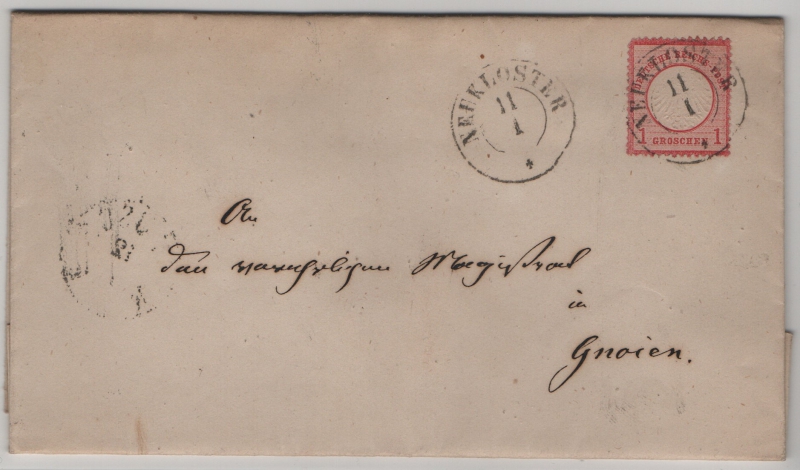 NEUKLOSTER
11
1
NEUKLOSTER
11
1
DEUTSCHE REICHS-POST
1 GROSCHEN 1
An
den verehrlichen Magistrat
in
Gnoien.